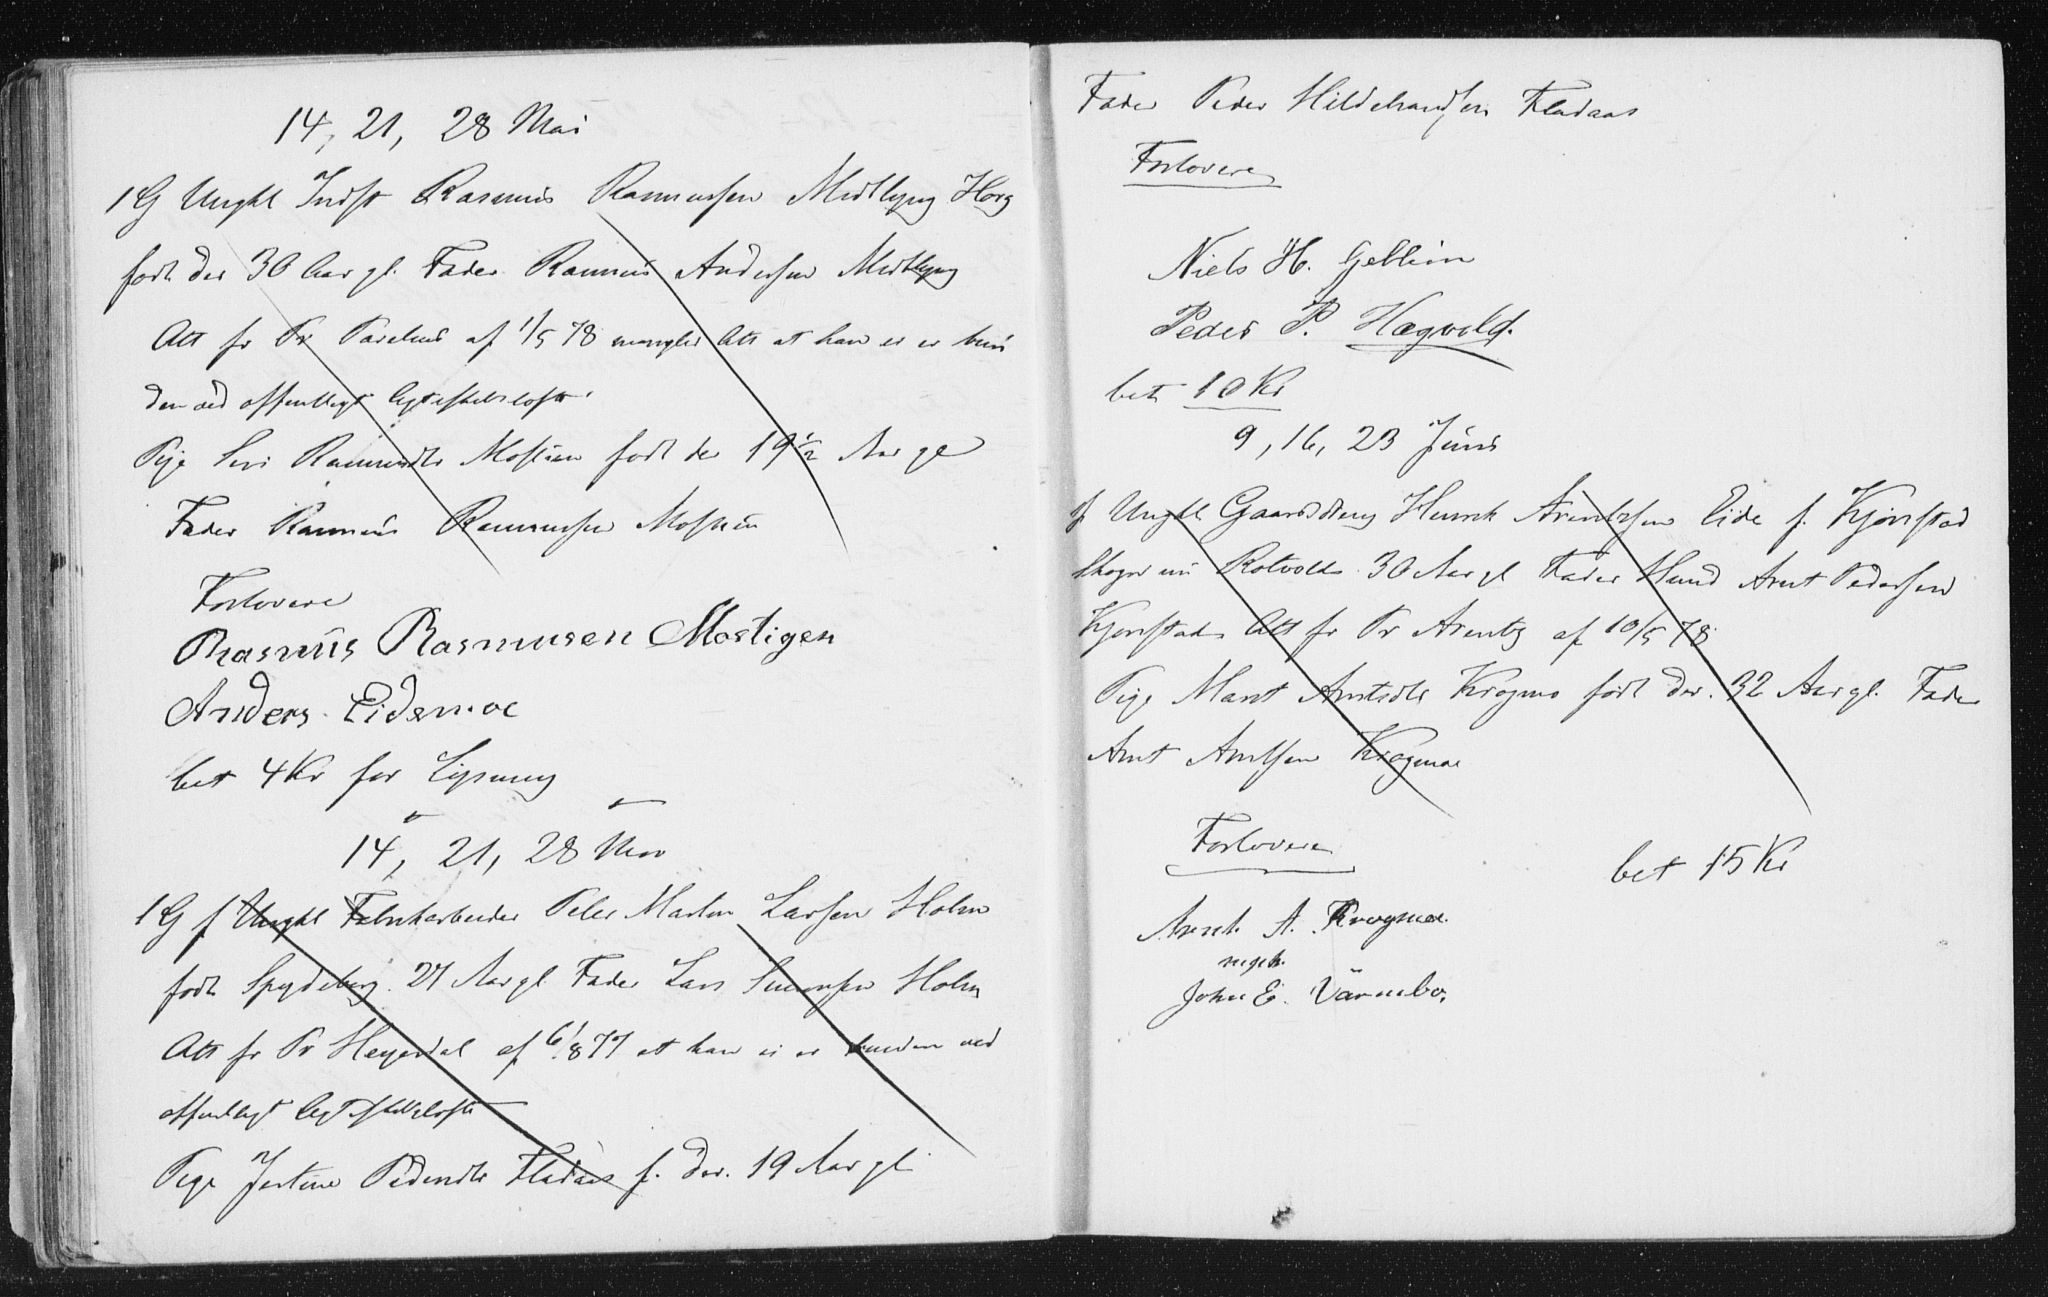 14, 21, 28 Mai
1 G Ungkl Indst Rasmus Rasmussen Midtlyng Horg
født der 30 Aar gl. Fader Rasmus Andersen Midtlyng
Att fr Pr Parelius af 1/5 78 mangler Att at han ei er bun
den ved offentligt Ægteskabsløfte
Pige Siri Rasmusdtr født der 19 1/2 Aar gl
Fader Rasmus Rasmussen
Forlovere
Rasmus Rasmusen Mostigen
Anders Eidemoe
bet 4 Kr for Lysning
14, 21, 28
1 G f Ungkl Fabrikarbeider Peter Martin Larsen Holm
født Spydeberg 27 Aar gl Fader Lars Holm
Att fr Pr Heyerdal af 6/8 77 at han ei er bunden ved
offentligt Ægteskabsløfte
Pige Pedersdtr Fladaas f. der. 19 Aar gl
Fader Peder Hildebrandsen Fladaas
Forlovere
Niels H. Gellein
Peder P. Hægvold.
bet 10 Kr
9, 16, 23 Juni
f Ungkl Gaarddreng Arentzsen Eide f. Kjønstad
Skogn nu Rotvold 30 Aar gl Fader Husmd Arnt Pedersen
Kjønstad Att fr Pr Arentz af 10/5 78
Pige Marit Arntsdtr Krogmo født der. 32 Aar gl. Fader
Arnt Arntsen Krogmoe
Forlovere
bet 15 Kr
Arent. A. Krogmoe
John E. Värnebo,